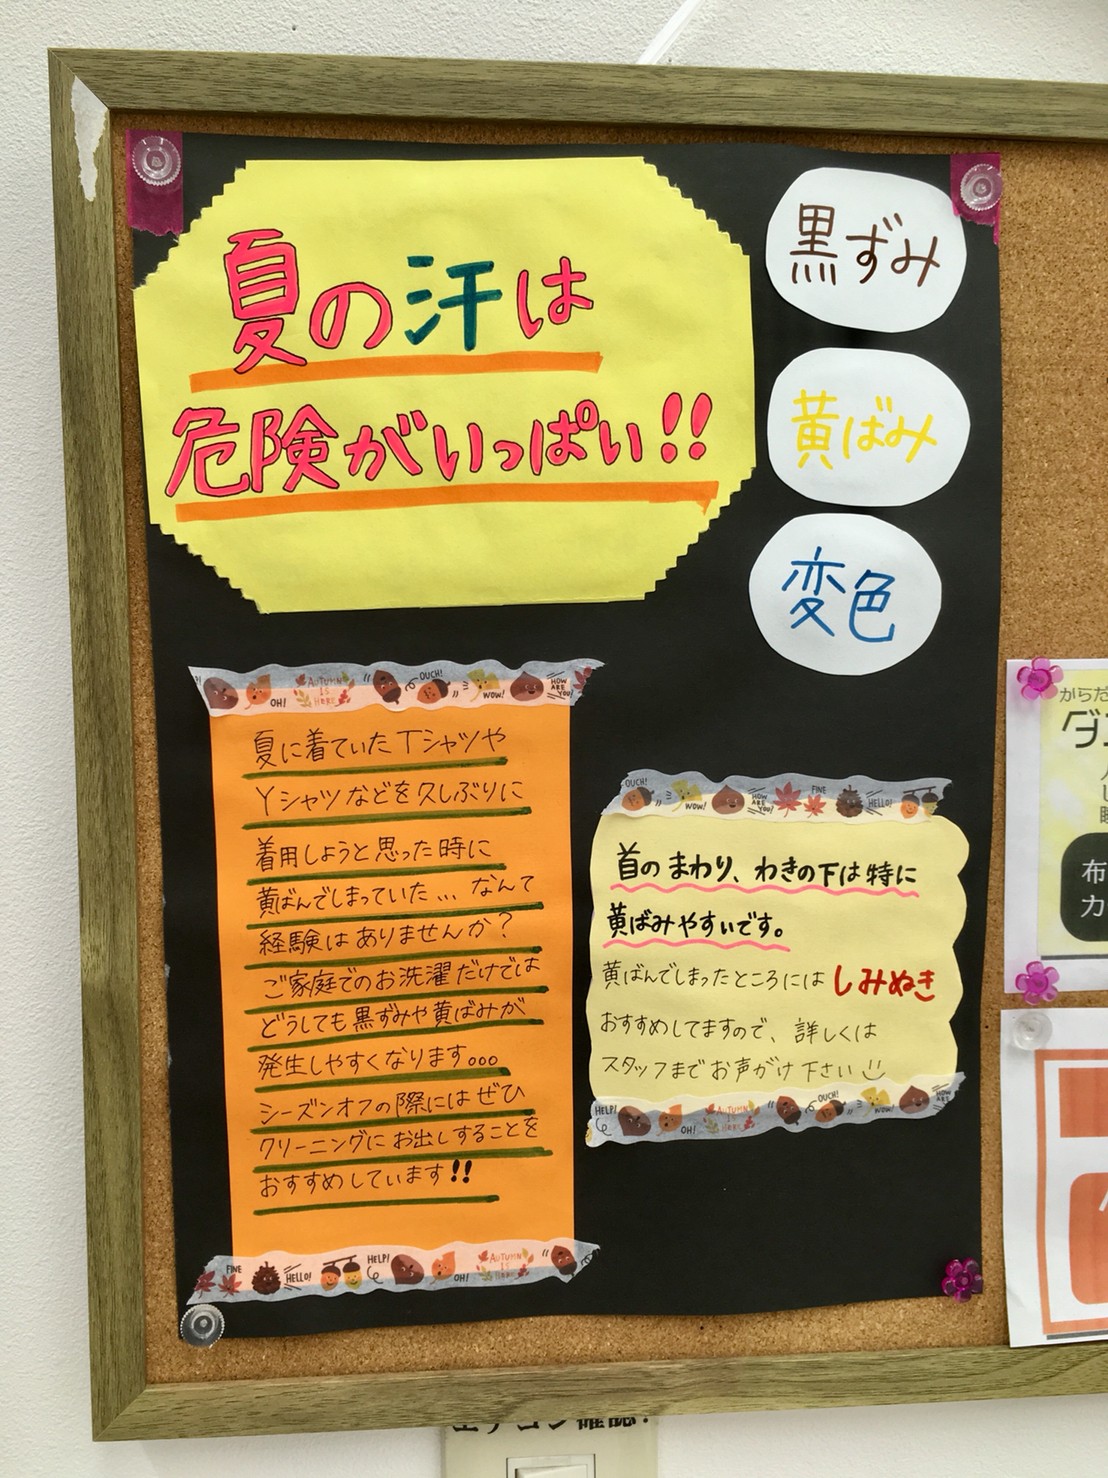 夏の汗は
危険がいっぱい!!
黒ずみ
黄ばみ
変色
OH!
AUTUMN
IS
HERE
OUCH!
WOW!
HOW
ARE
YOU!
夏に着ていたTシャツや
Yシャツなどを久しぶりに
着用しようと思った時に
黄ばんでしまっていた…なんて
経験はありませんか?
ご家庭でのお洗濯だけでは
どうしても黒ずみや黄ばみが
発生しやすくなります。。。
シーズンオフの際にはぜひ
クリーニングにお出しすることを
おすすめしています!!
FINE
HELLO!
HELP!
OH!
AUTUMN
IS
HERE
OUCH!
WOW!
HOW
ARE
YOU!
FINE
HELLO!
首のまわり、わきの下は特に
黄ばみやすいです。
黄ばんでしまったところにはしみぬき
おすすめしてますので、詳しくは
スタッフまでお声がけ下さい
HELP!
OH!
AUTUMN
IS
HERE
OUCH!
WOW!
HOW
ARE
からだ
ダ
布
カ
エアコン確認!